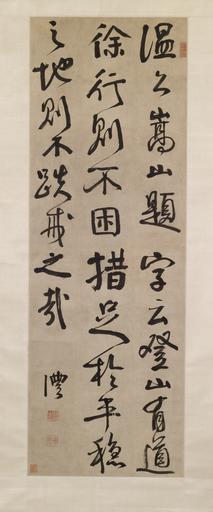 溫公嵩山題字云登山有道
徐行則不困措足於平穩
之地則不跌戒之哉
澧